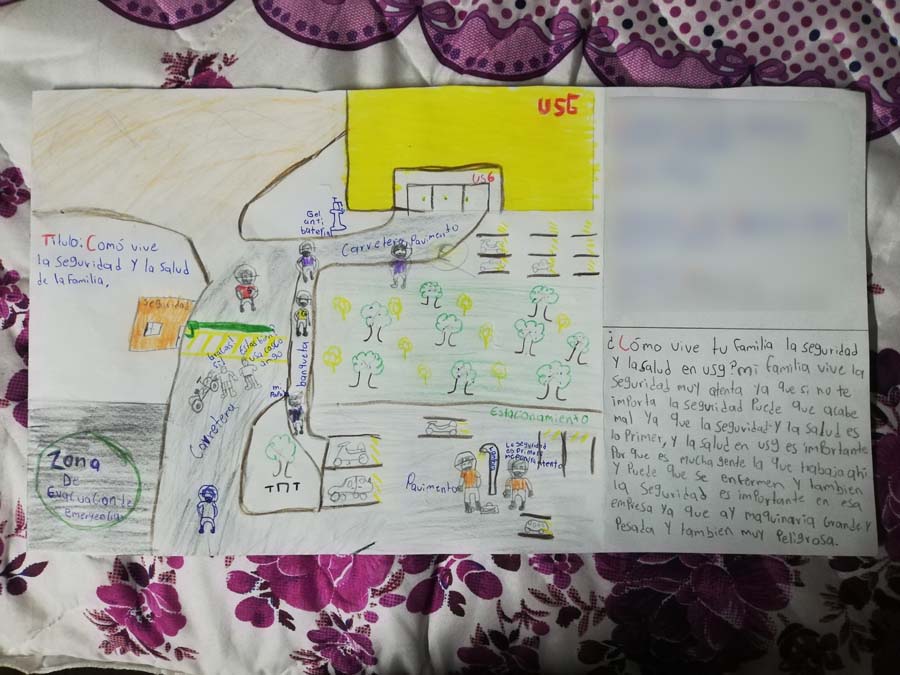 USG
USG
Gel
anti
baterial
Carretera Pavimento
Titulo: Comó vive
la seguridad y la salud
de la familia,
Seguridad
Estas bien
usa casco
amigo
banqueta
mi
Carretera
Estacionamiento
La seguridad
es Primero
atento
Pavimento
TMT
Zona
De
Evacuacion de
emergencias
¿Cómo vive tu familia la seguridad
y la salud en usg? mi familia vive la
seguridad muy atenta ya que si no te
importa la seguridad Puede que acabe
mal Ya que la seguridad y la salud es
lo Primer, y la salud en usg es importante
Por que es mucha gente la que trabaja ahi
y Puede que se enfermen y tambien
la seguridad es importante en esa
empresa ya que ay maquinaria Grande y
Pesada y tambien muy Peligrosa.